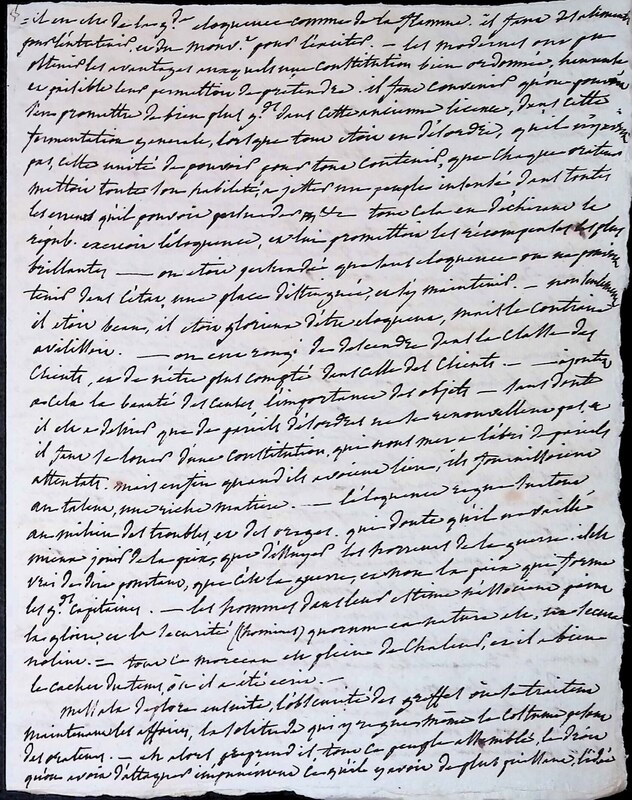 = il en est de la gde eloquence comme de la flamme. il faut des alimens
pour l'entretenir, et du mouvt pour l'exciter. — les modernes ont pu
obtenir les avantages auxquels une constitution bien ordonnée, heureuse
et paisible leur permettoit de pretendre. il faut convenir qu'on pouvoit
s'en promettre de bien plus gds dans cette ancienne licence, dans cette
fermentation generale, lorsque tout etoit en désordre, qu'il n'y avoit
pas, cette unité de pouvoir pour tout contenir, que chaque orateur
mettoit toute son habileté, à jetter un peuple insensé, dans toutes
les erreurs qu'il pouvoit persuader tout cela en dechirant la
répub. exercoit l'éloquence, et lui promettoit les recompenses les plus
brillantes — on etoit persuadé que sans eloquence on ne pouvoit
tenir dans l'état, une place distinguée, et s'y maintenir. — non seulement
il etoit beau, il etoit glorieux d'être eloquent, mais le contraire
avilissoit. — on eut rougi de descendre dans la classe des
clients, et de n'être plus compté dans celle des — ajoutez
a cela la beauté des causes, l'importance des objets — sans doute
il est a desirer que de pareils désordres ne se renouvellent pas, et
il faut se louer d'une constitution, qui nous met a l'abri de pareils
attentats. mais enfin quand ils avoient lieu, ils fournissoient
au talent, une riche matiere. — l'éloquence regne surtout
au milieu des troubles, et des orages. qui doute qu'il
mieux jouir de la paix, que d'essuyer les horreurs de la guerre. il est
vrai de dire pourtant, que c'est la guerre, et non la paix que forme
les gds capitaines. — les hommes dans leur estime n'associent point
la gloire et la securité (homines) quorum ea natura est, ut secura
nolint. — tout ce morceau est plein de chaleur, et il a bien
le cachet du tems, où il a été ecrit. —
Messala deplore ensuite, l'obscurité des greffes où se traitent
maintenant les affaires, la solitude qui y regne, même le costume
des orateurs. — eh alors, reprend il, tout ce peuple assemblé, le droit
qu'on avoit d'attaquer impunément ce qu'il y avoit de plus puissant, l'idée